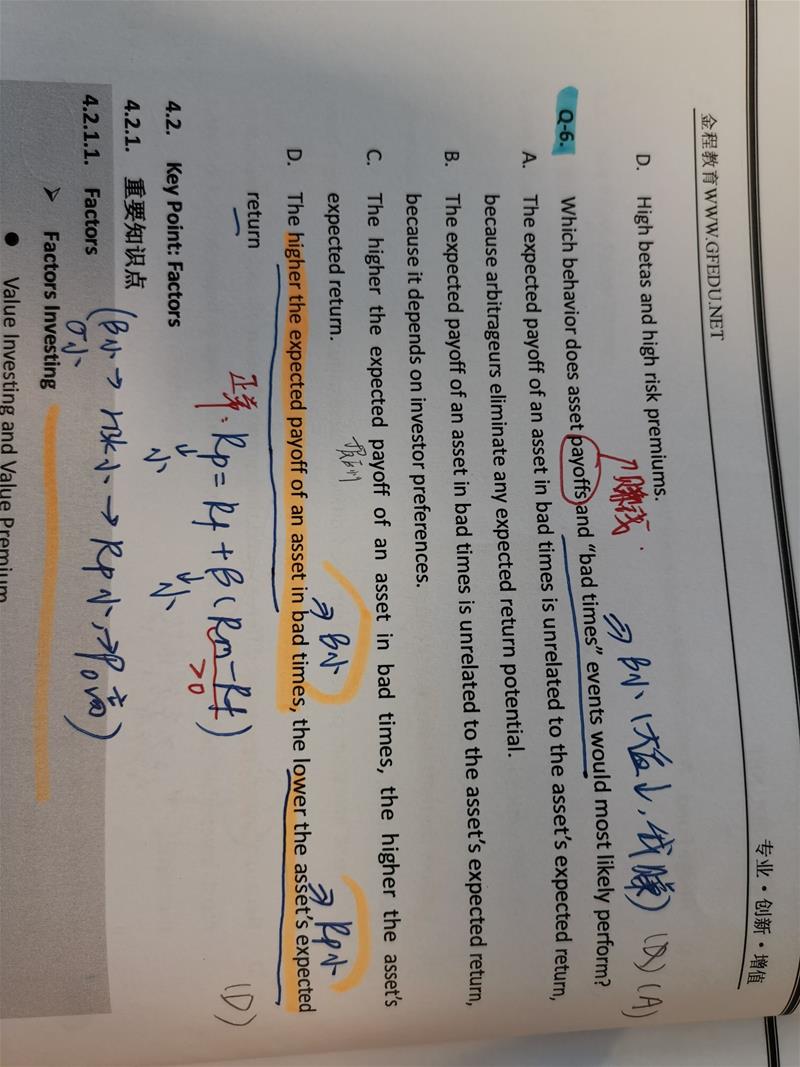 金程教育WWW.GFEDU.NET
专业·创新·增值
D. High betas and high risk premiums.
(A)
↑赚钱.
⇒ β小(大盘↓,我赚)
Q-6. Which behavior does asset payoffs and “bad times” events would most likely perform?
A. The expected payoff of an asset in bad times is unrelated to the asset’s expected return,
because arbitrageurs eliminate any expected return potential.
B. The expected payoff of an asset in bad times is unrelated to the asset’s expected return,
because it depends on investor preferences.
C. The higher the expected payoff of an asset in bad times, the higher the asset’s
expected return.
⇒ β小
⇒ Rp小
D. The higher the expected payoff of an asset in bad times, the lower the asset’s expected
return
(D)
正常: Rp = Rf + β(Rm - Rf)
↓小
↓小
>0
4.2. Key Point: Factors
4.2.1. 重要知识点
(β小→ risk小 → Rp小, → P0高)
σ小
4.2.1.1. Factors
➢ Factors Investing
● Value Investing and Value Premium